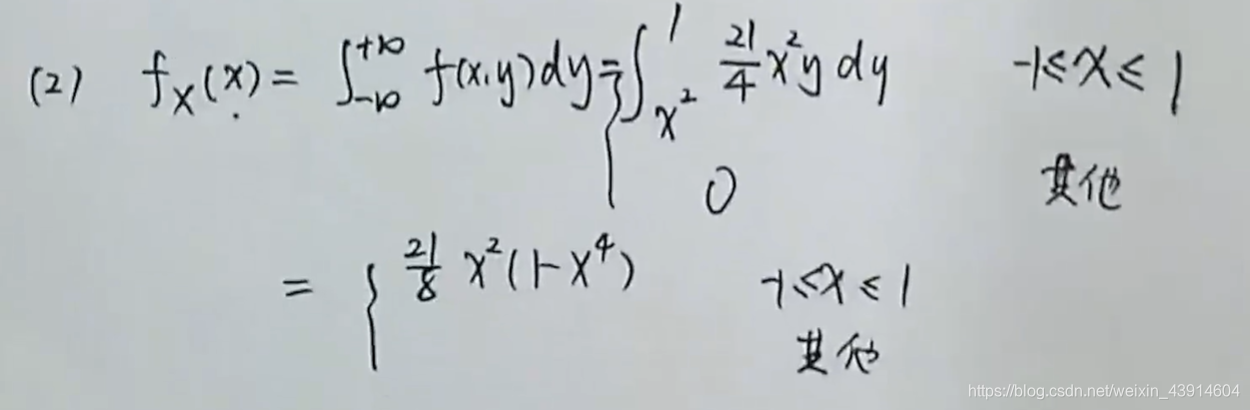 (2) f_X(x) = ∫_{-∞}^{+∞} f(x,y)dy = { ∫_{x²}^{1} 21/4 x²y dy -1≤x≤1
0 其他
= { 21/8 x²(1-x⁴) -1≤x≤1
其他
https://blog.csdn.net/weixin_43914604